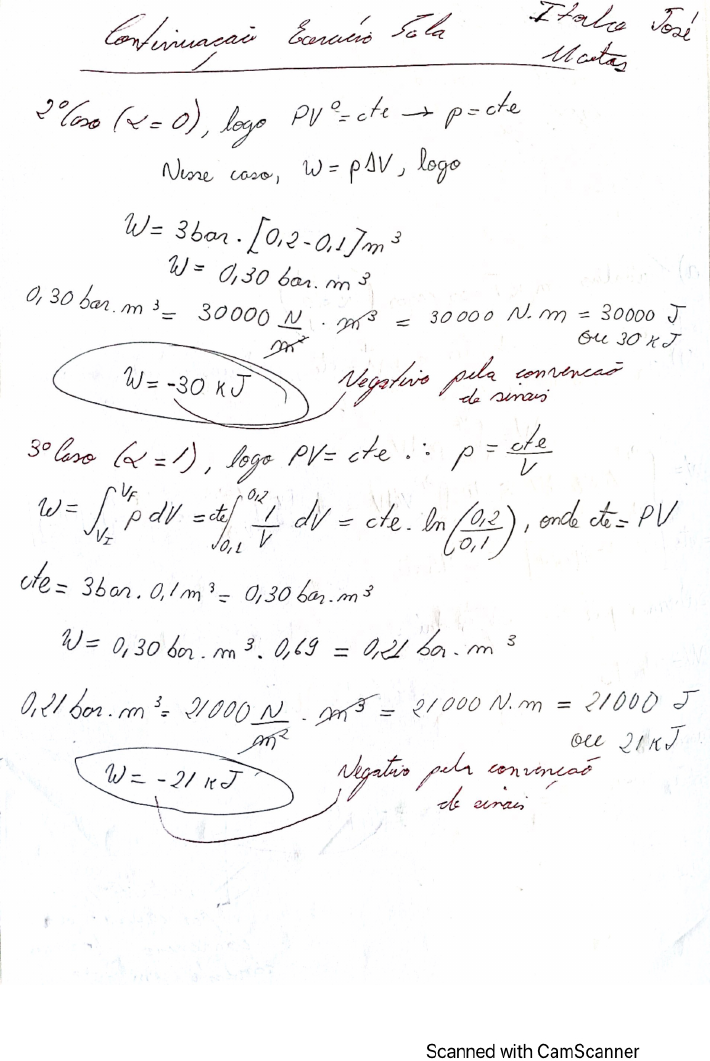 Continuação Exercício Sala
Italo José
Matos
2º Caso (α = 0), logo PV⁰ = cte → p = cte
Nesse caso, W = pΔV, logo
W = 3bar · [0,2 - 0,1] m³
W = 0,30 bar. m³
0,30 bar. m³ = 30000 N/m² · m³ = 30000 N.m = 30000 J
ou 30 kJ
W = -30 kJ
Negativo pela convencão
de sinais
3º Caso (α = 1), logo PV = cte ∴ p = cte/V
W = ∫_{V_I}^{V_F} p dV = cte ∫_{0,1}^{0,2} 1/V dV = cte. ln (0,2/0,1), onde cte = PV
cte = 3bar. 0,1m³ = 0,30 bar.m³
W = 0,30 bar. m³. 0,69 = 0,21 bar. m³
0,21 bar. m³ = 21000 N/m² · m³ = 21000 N.m = 21000 J
ou 21 kJ
W = -21 kJ
Negativo pela convenção
de sinais
Scanned with CamScanner